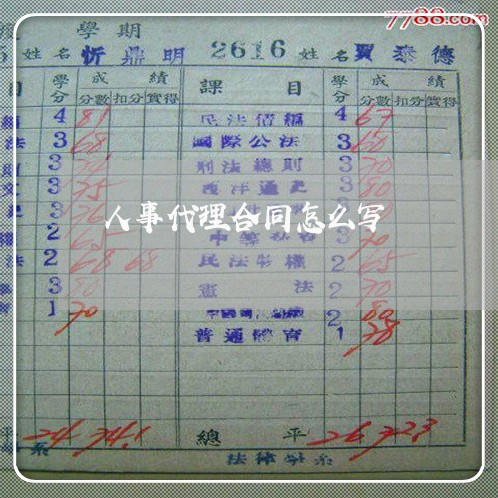 7788.com
學期
姓名 忻鼎明 2616 姓名 賈泰德
目 學分 成績 課目 學分 成績
分數 扣分 實得 分數 扣分 實得
4 81 民法債編 4 67
法 3 68 國際公法 3 60
3 刑法總則 3 70
3 75 西洋通史 3 80
人事代理合同怎么写
2 65 3 70
法 2 68 68 民法物權 2 65
3 80 憲法 2 70
1 70 2 80
普通體育 1 78
平 24 74.1 總平 26 72.3
系 法律學系